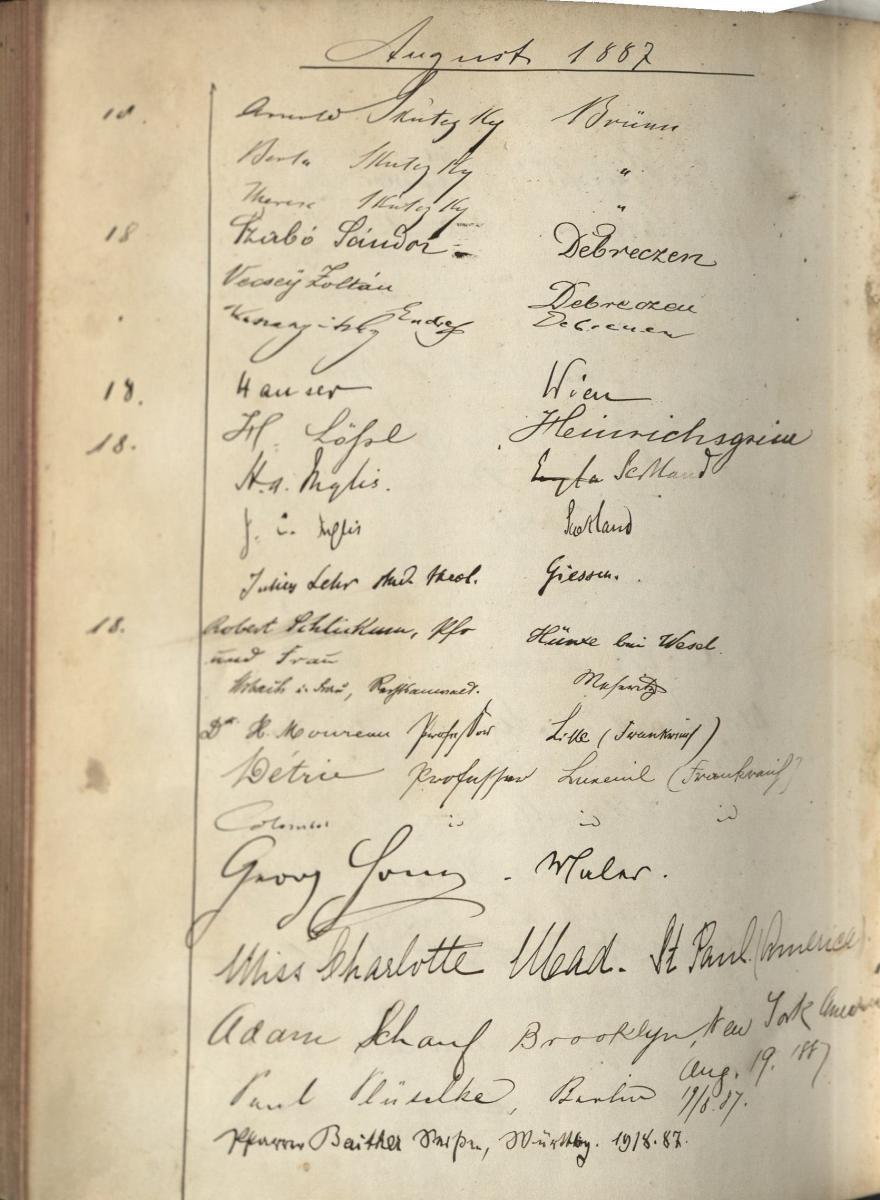 August 1887
18 Arnold Skutezky Brünn
Berta Skutezky "
Therese Skutezky "
18 Szabó Sándor Debreczen
Vecsey Zoltán Debreczen
Endre Debreczen
18. Hauser Wien
18. H. Lößl Heinrichsgrün
H. A. Inglis. Scotland
J. Inglis Scotland
Julius Lehr stud. theol. Giessen.
18. Robert Schlickum, Pfr Hünxe bei Wesel.
und Frau
u. Frau, Rechtsanwalt. Meseritz
Dr H. Moureau Professor Lille (Frankreich)
Détrie Professor Luxeuil (Frankreich)
Colomb id id id
Georg . Maler.
Miss Charlotte Mead. St Paul (America)
Adam Schauf Brooklyn, New York America
Aug. 19. 1887
Paul Klüselke, Berlin 19/8.87.
Pfarrer Baither, Württbg. 19/8.87.